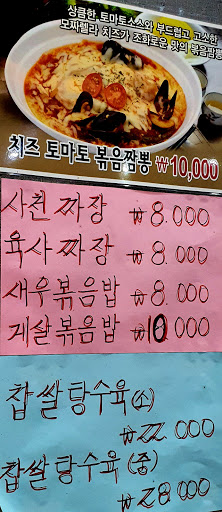 상큼한 토마토소스와 부드럽고 고소한
모짜렐라 치즈가 조화로운 맛의 볶음짬뽕
치즈 토마토 볶음짬뽕 ₩10,000
사천 짜장 ₩8.000
육사 짜장 ₩8.000
새우볶음밥 ₩8.000
게살볶음밥 ₩10.000
찹쌀탕수육(소)
₩22.000
찹쌀탕수육(중)
₩28000